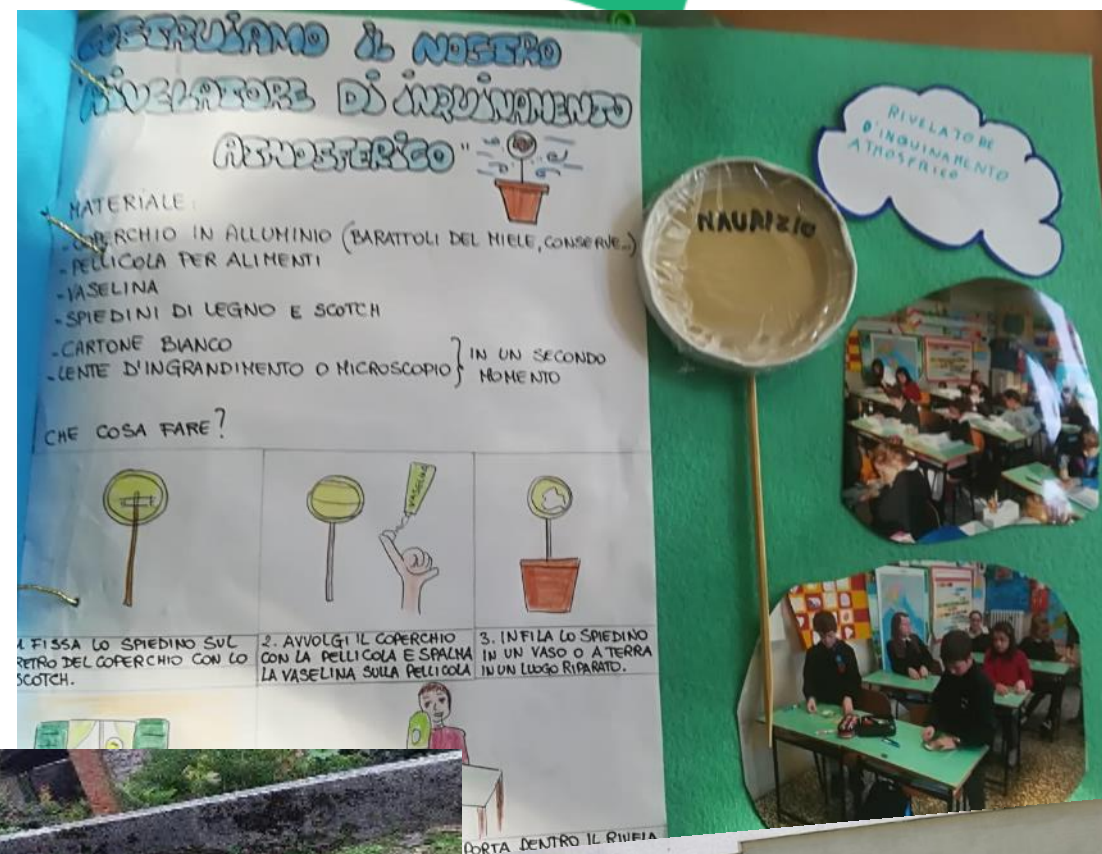 COSTRUIAMO IL NOSTRO
"RIVELATORE DI INQUINAMENTO
ATMOSFERICO"
MATERIALE:
- COPERCHIO IN ALLUMINIO (BARATTOLI DEL MIELE, CONSERVE..)
- PELLICOLA PER ALIMENTI
- VASELINA
- SPIEDINI DI LEGNO E SCOTCH
- CARTONE BIANCO
- LENTE D'INGRANDIMENTO O MICROSCOPIO } IN UN SECONDO
MOMENTO
CHE COSA FARE?
VASELINA
1. FISSA LO SPIEDINO SUL
RETRO DEL COPERCHIO CON LO
SCOTCH.
2. AVVOLGI IL COPERCHIO
CON LA PELLICOLA E SPALMA
LA VASELINA SULLA PELLICOLA
3. INFILA LO SPIEDINO
IN UN VASO O A TERRA
IN UN LUOGO RIPARATO.
PORTA DENTRO IL RIVELA
RIVELATORE
D'INQUINAMENTO
ATMOSFRICO
MAURIZIO